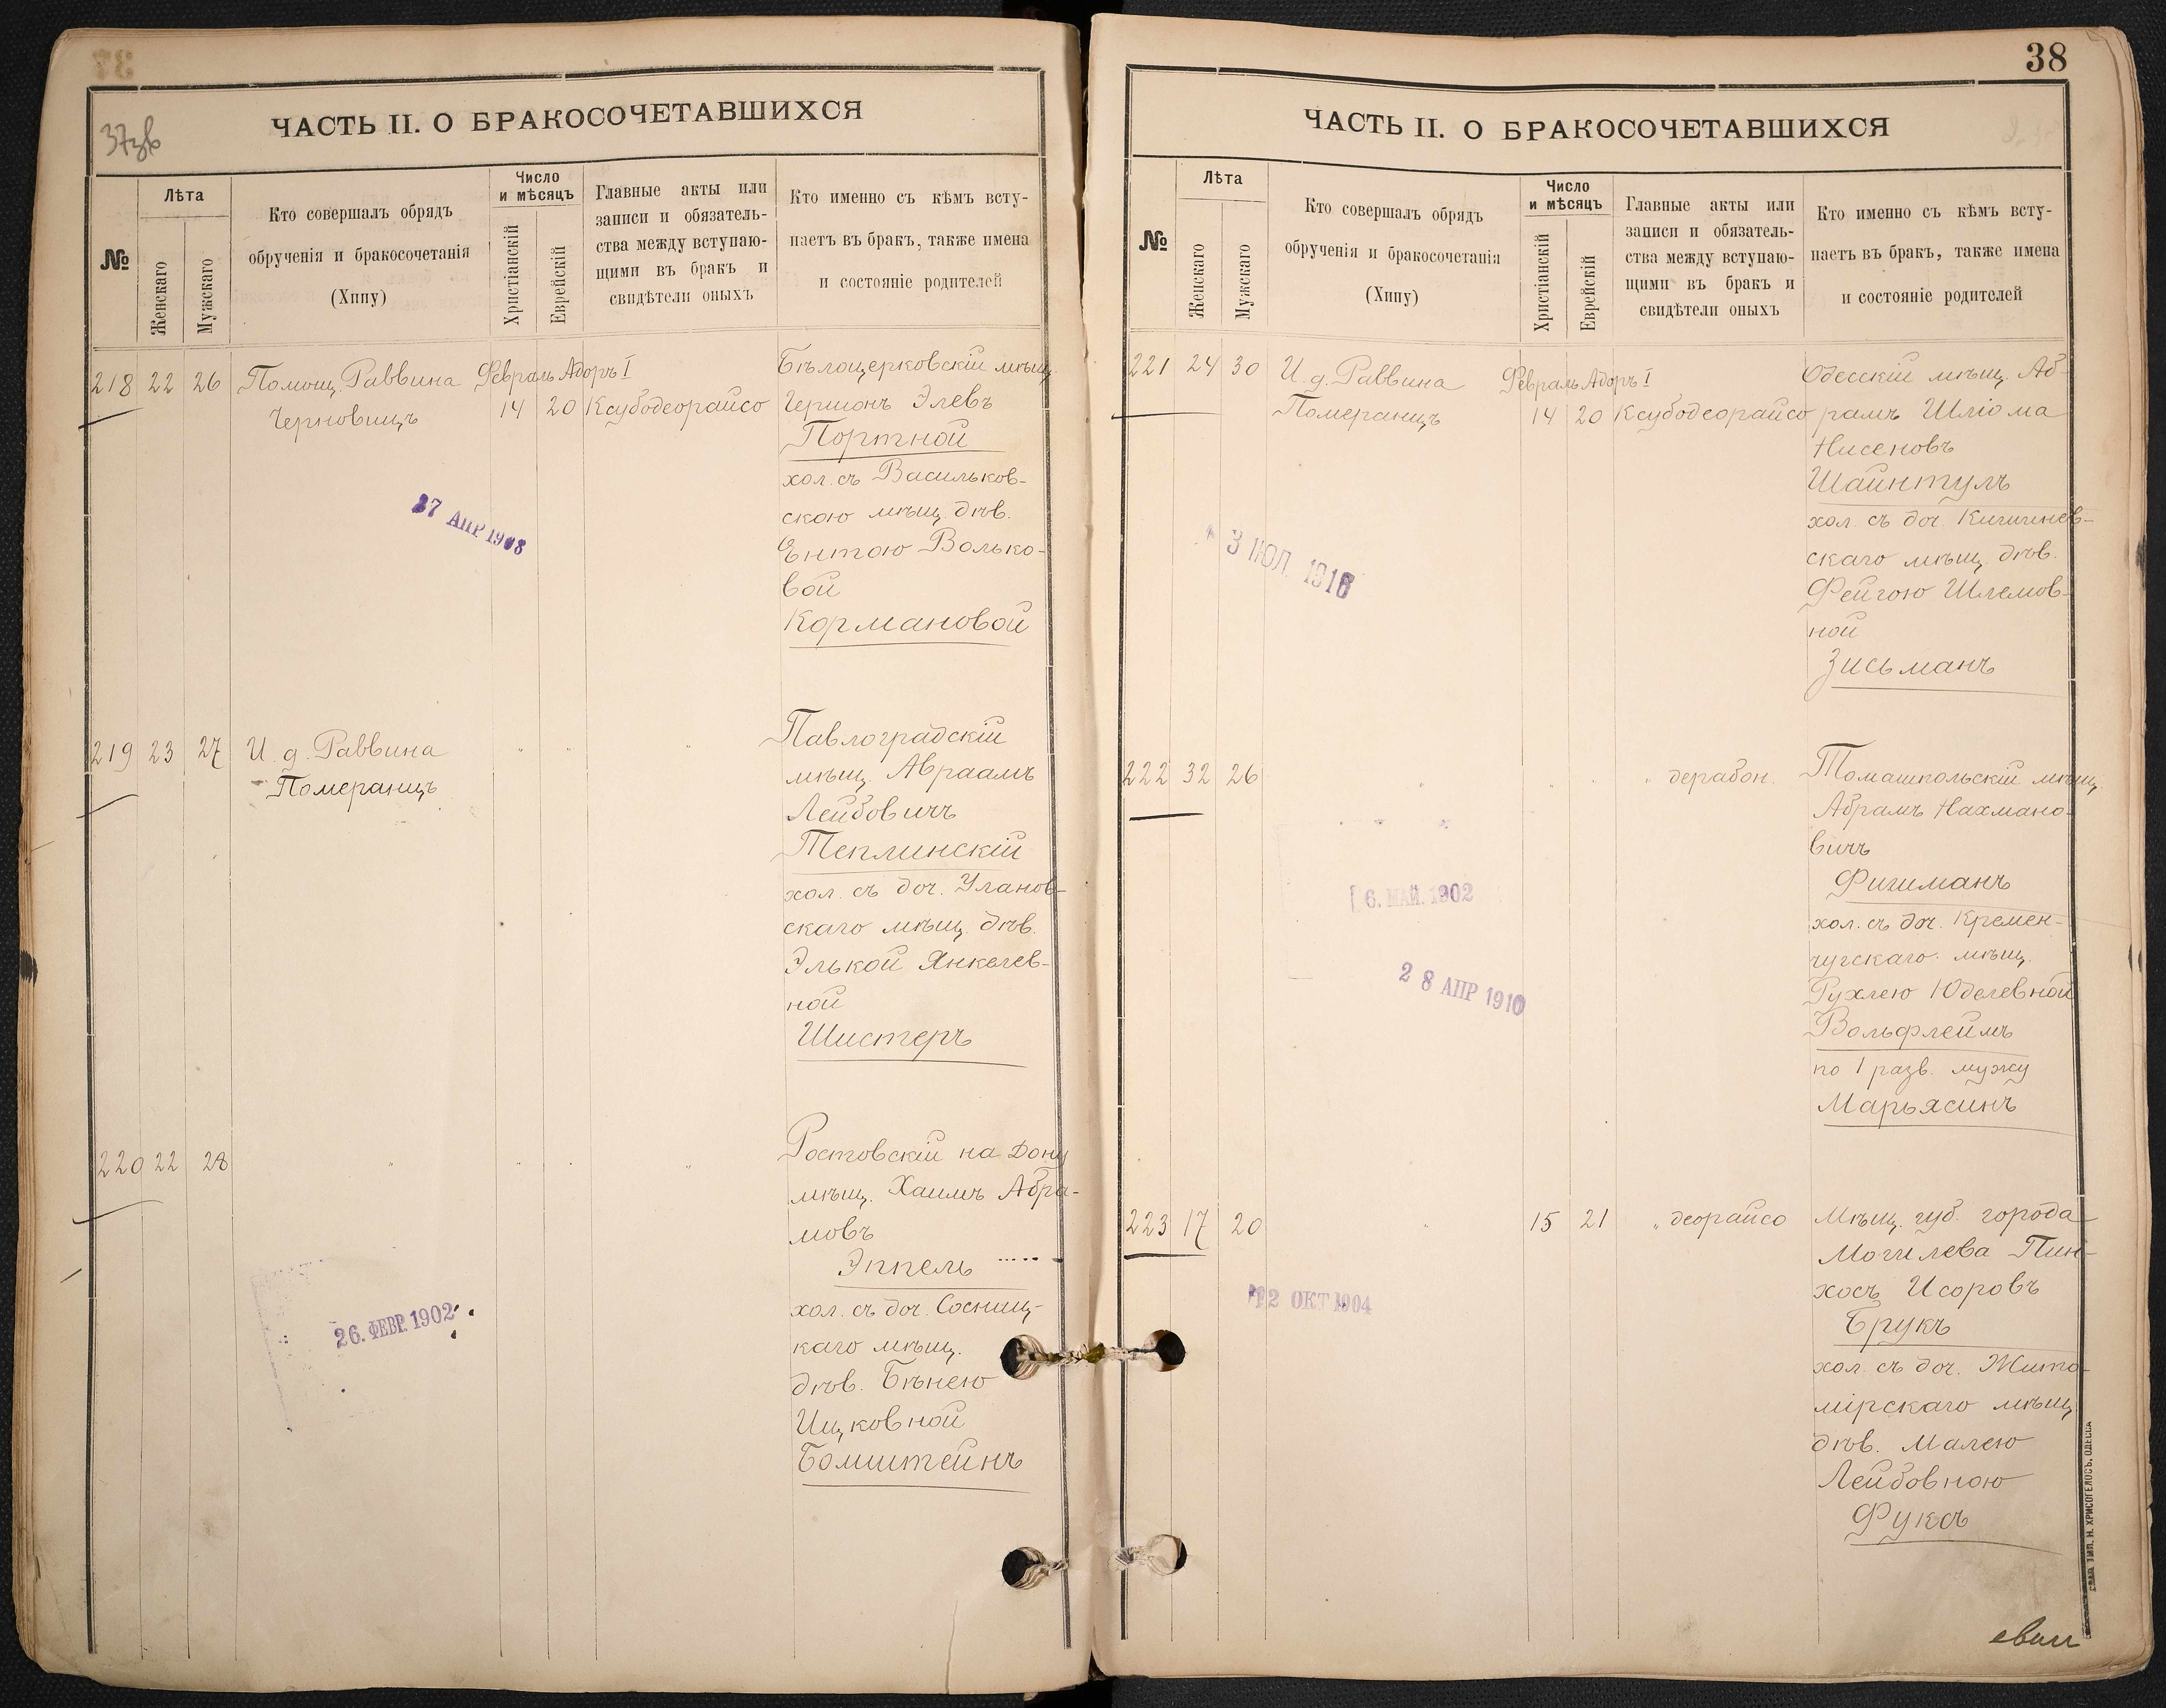 37зв
ЧАСТЬ II. О БРАКОСОЧЕТАВШИХСЯ
№
Лѣта
Женскаго
Мужскаго
Кто совершалъ обрядъ
обрученія и бракосочетанія
(Хипу)
Число
и мѣсяцъ
Христіанскій
Еврейскій
Главные акты или
записи и обязатель-
ства между вступаю-
щими въ бракъ и
свидѣтели оныхъ
Кто именно съ кѣмъ всту-
паетъ въ бракъ, также имена
и состояніе родителей
218 22 26 Помощ. Раввина
Черновицъ
Февраль Адоръ I
14 20 Ксубодеорайсо
Бѣлоцерковскій мѣщ.
Гершонъ Элевъ
Портной
хол. съ Васильков-
скою мѣщ. дѣв.
Ентою Волько-
вой
Кормановой
27 АПР 1908
219 23 27 И. д. Раввина
Померанцъ
" " "
Павлоградскій
мѣщ. Авраамъ
Лейбовичъ
Теплинскій
хол. съ доч. Уланов-
скаго мѣщ. дѣв.
Элькой Янкелев-
ной
Шистеръ
220 22 28 " " " "
Ростовскій на Дону
мѣщ. Хаимъ Абра-
мовъ
Эппель
хол. съ доч. Сосниц-
каго мѣщ.
дѣв. Бѣнею
Ицковной
Бомштейнъ
26. ФЕВР. 1902
38
ЧАСТЬ II. О БРАКОСОЧЕТАВШИХСЯ
№
Лѣта
Женскаго
Мужскаго
Кто совершалъ обрядъ
обрученія и бракосочетанія
(Хипу)
Число
и мѣсяцъ
Христіанскій
Еврейскій
Главные акты или
записи и обязатель-
ства между вступаю-
щими въ бракъ и
свидѣтели оныхъ
Кто именно съ кѣмъ всту-
паетъ въ бракъ, также имена
и состояніе родителей
221 24 30 И. д. Раввина
Померанцъ
Февраль Адоръ I
14 20 Ксубодеорайсо
Одесскій мѣщ. Аб-
рамъ Шліома
Нисеновъ
Шайнтулъ
хол. съ доч. Кишинев-
скаго мѣщ. дѣв.
Фейгою Шлемов-
ной
Зисьманъ
3 ИЮЛ. 1916
222 32 26 " " " " дерабон.
Томашпольскій мѣщ.
Абрамъ Нахмано-
вичъ
Фишманъ
хол. съ доч. Кремен-
чугскаго мѣщ.
Рухлею Юделевной
Вольфлеймъ
по 1 разв. мужу
Марьясинъ
6. МАЙ. 1902
28 АПР 1910
223 17 20 " 15 21 " деорайсо
Мѣщ. губ. города
Могилева Пин-
хосъ Исоровъ
Брукъ
хол. съ доч. Жито-
мірскаго мѣщ.
дѣв. Малею
Лейбовною
Фуксъ
12 ОКТ 1904
ТИП. Н. ХРИСОГЕЛОСЪ. ОДЕССА